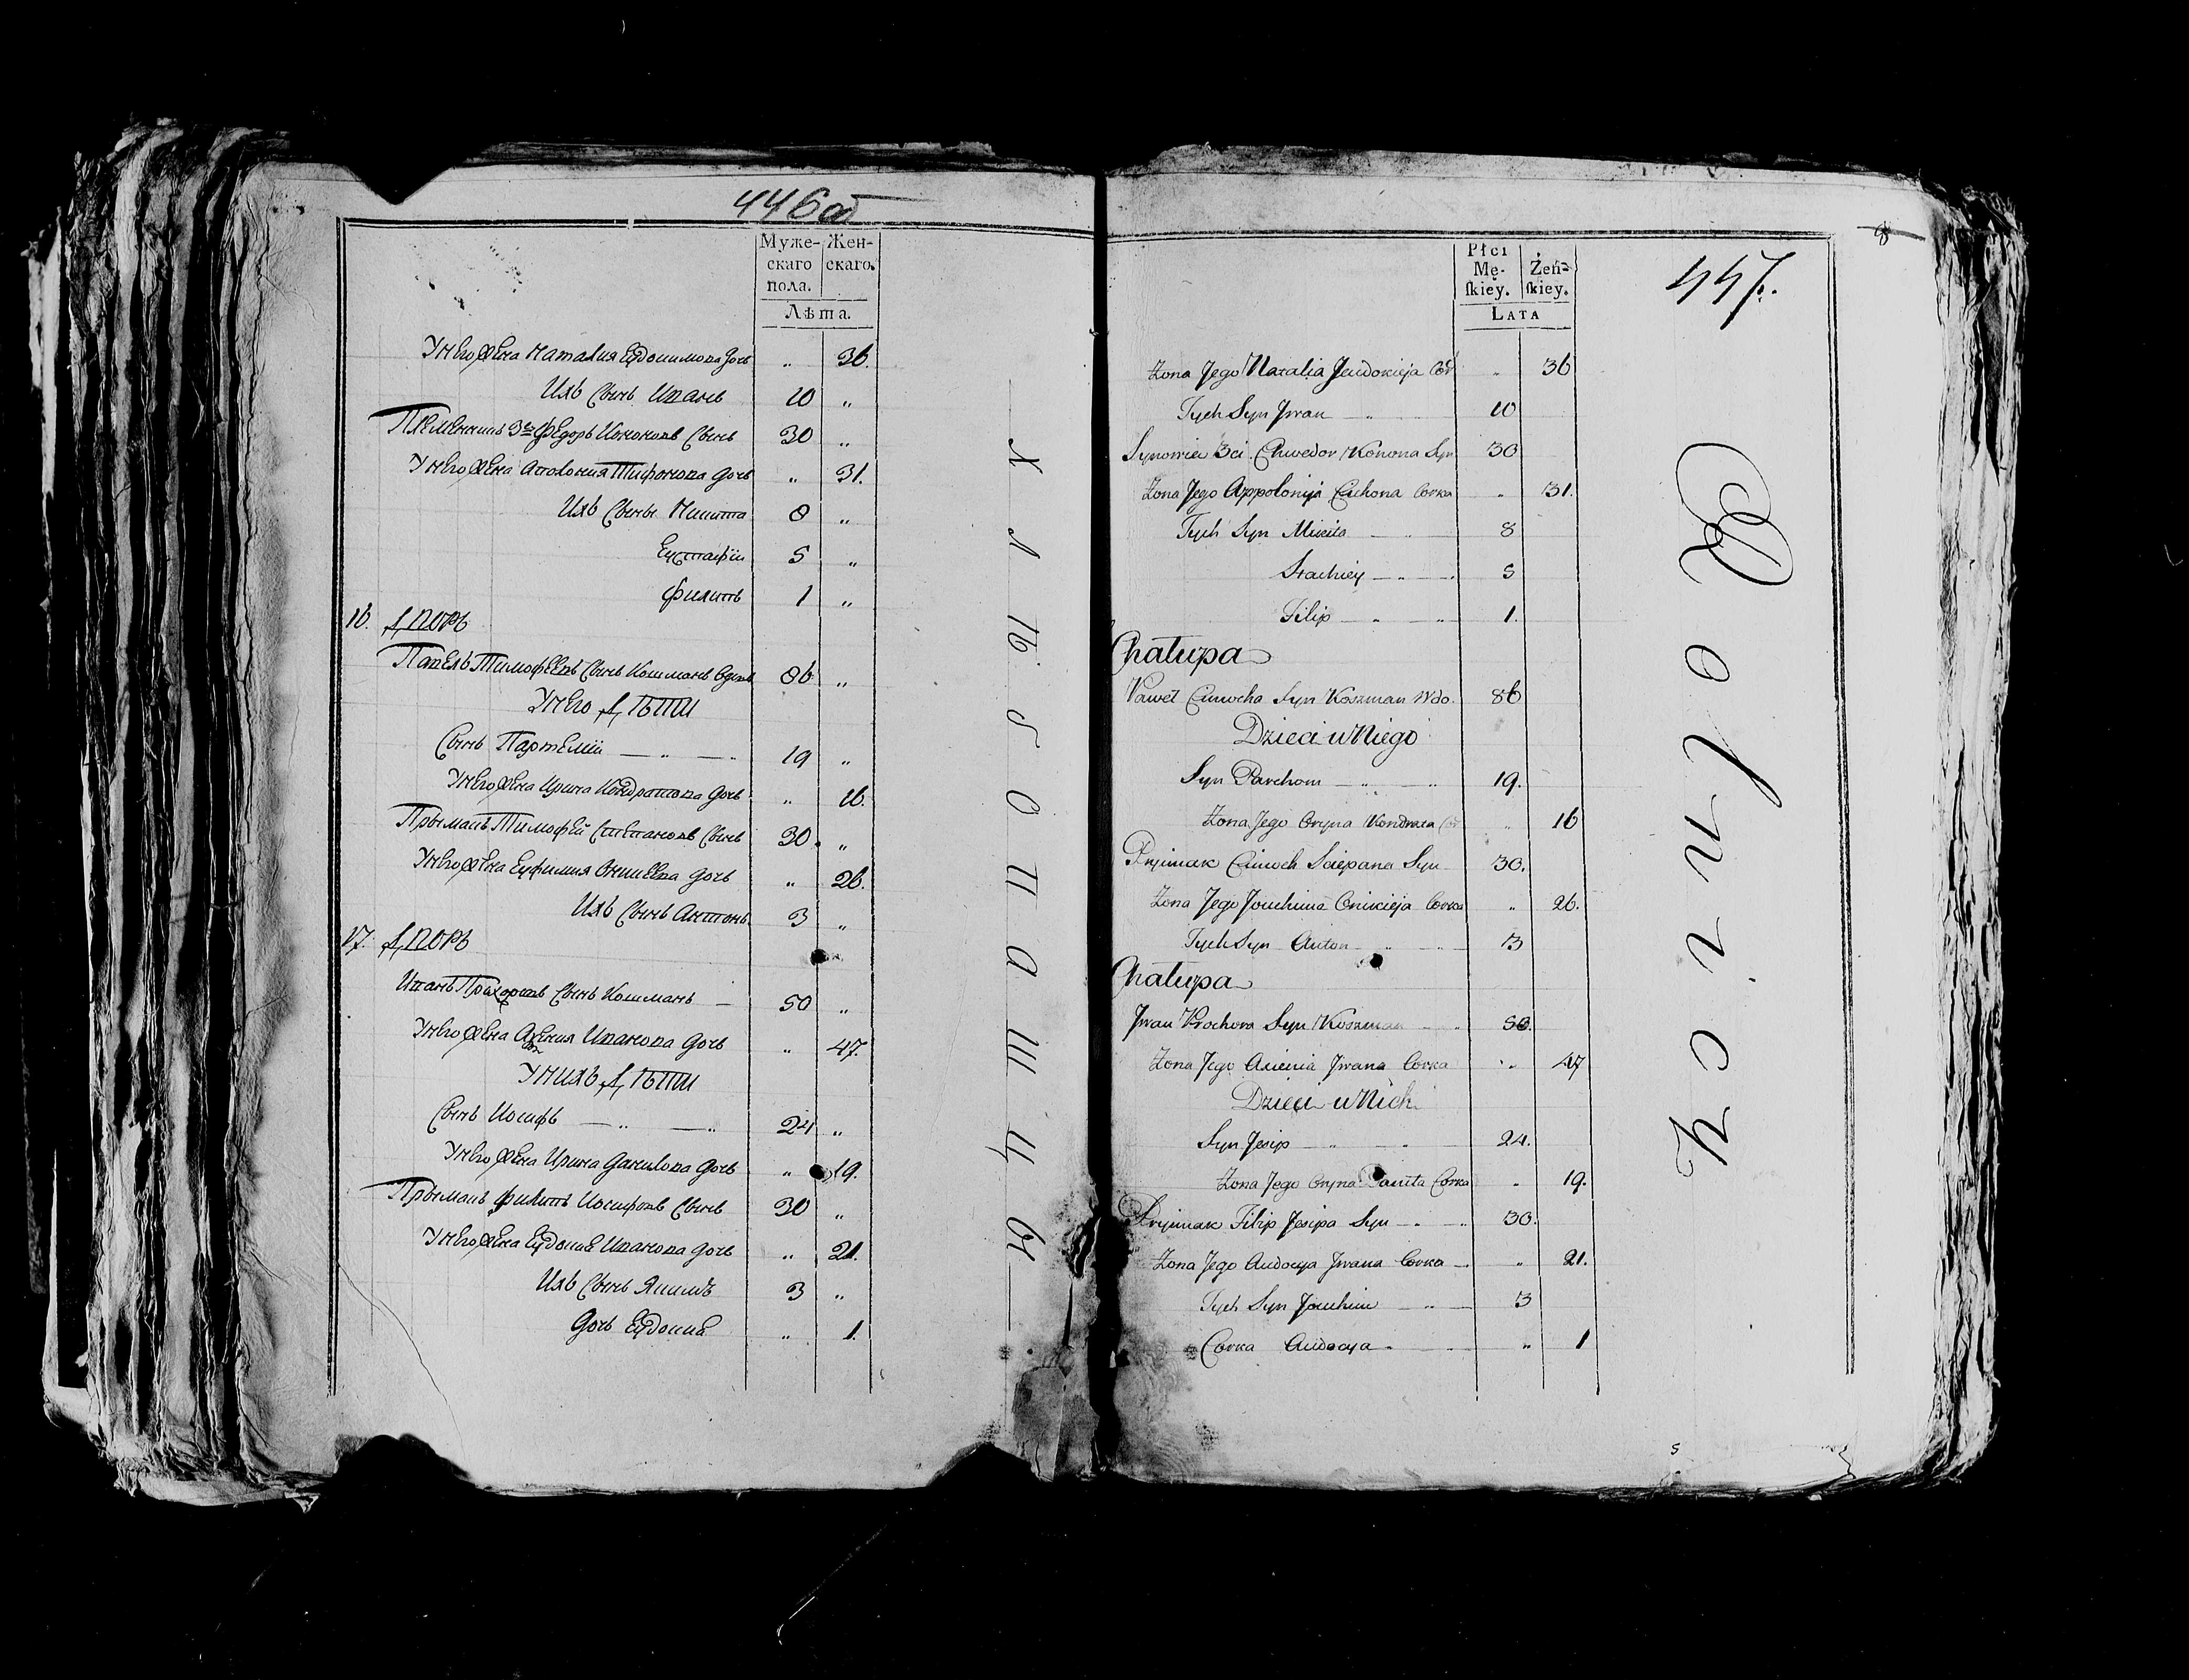 446об
Муже-
скаго
пола.
Жен-
скаго.
Лѣта.
У него жена Наталия Евдокимова дочь „ 36.
Ихъ сынъ Иванъ 10 „
Племенникъ 3й Федоръ Кононовъ сынъ 30 „
У него жена Аполония Тифонова дочь „ 31.
Ихъ сыны Никита 8 „
Евстафiи 5 „
Филипъ 1 „
16. Дворъ
Павелъ Тимофеевъ сынъ Кошманъ вдовъ 86 „
У него дѣти
Сынъ Партемiи — „ — „ 19 „
У него жена Ирина Кондратова дочь „ 16.
Прымакъ Тимофей Степановъ сынъ 30. „
У него жена Евфимия Оникеева дочь „ 26.
Ихъ сынъ Антонъ 3 „
17. Дворъ
Иванъ Прахоровъ сынъ Кошманъ — 50 „
У него жена Ксения Иванова дочь „ 47.
У нихъ дѣти
Сынъ Иосифъ — „ — „ 24 „
У него жена Ирина Данилова дочь „ 19.
Прымакъ Филипъ Иосифовъ сынъ 30 „
У него жена Евдокия Иванова дочь „ 21.
Ихъ сынъ Якимъ 3 „
Дочь Евдокия „ 1.
Хлѣбопашцы
8
447.
Płci
Mę-
ſkiey.
Żeń-
ſkiey.
LATA
Zona Jego Natalia Jeudokieja Cor „ 36
Tych Syn Jwan — „ 10
Synowiec 3ci Chwedor Konona Syn 30
Zona Jego Appolonija Cichona Corka „ 31.
Tych Syn Mikita — „ 8
Stachiey — „ — 5
Filip — „ — „ 1.
Chałupa
Paweł Cimocha Syn Koszman Wdo. 86
Dzieci u Niego
Syn Parchom — „ — „ 19.
Zona Jego Oryna Kondrata Cor „ 16
Pryimak Cimoch Sciepana Syn 30.
Zona Jego Jouchima Onikieja Corka „ 26.
Tych Syn Anton — „ — 3
Chałupa
Jwan Prochora Syn Koszman — „ 50.
Zona Jego Axienia Jwana Corka „ 47
Dzieci u Nich
Syn Jesip — „ — „ 24.
Zona Jego Oryna Daniła Corka „ 19.
Pryimak Filip Jesipa Syn — „ — „ 30.
Zona Jego Audocya Jwana Corka — „ 21.
Tych Syn Jouchim — „ — 3
Corka Audocya — „ 1
Rolnicy